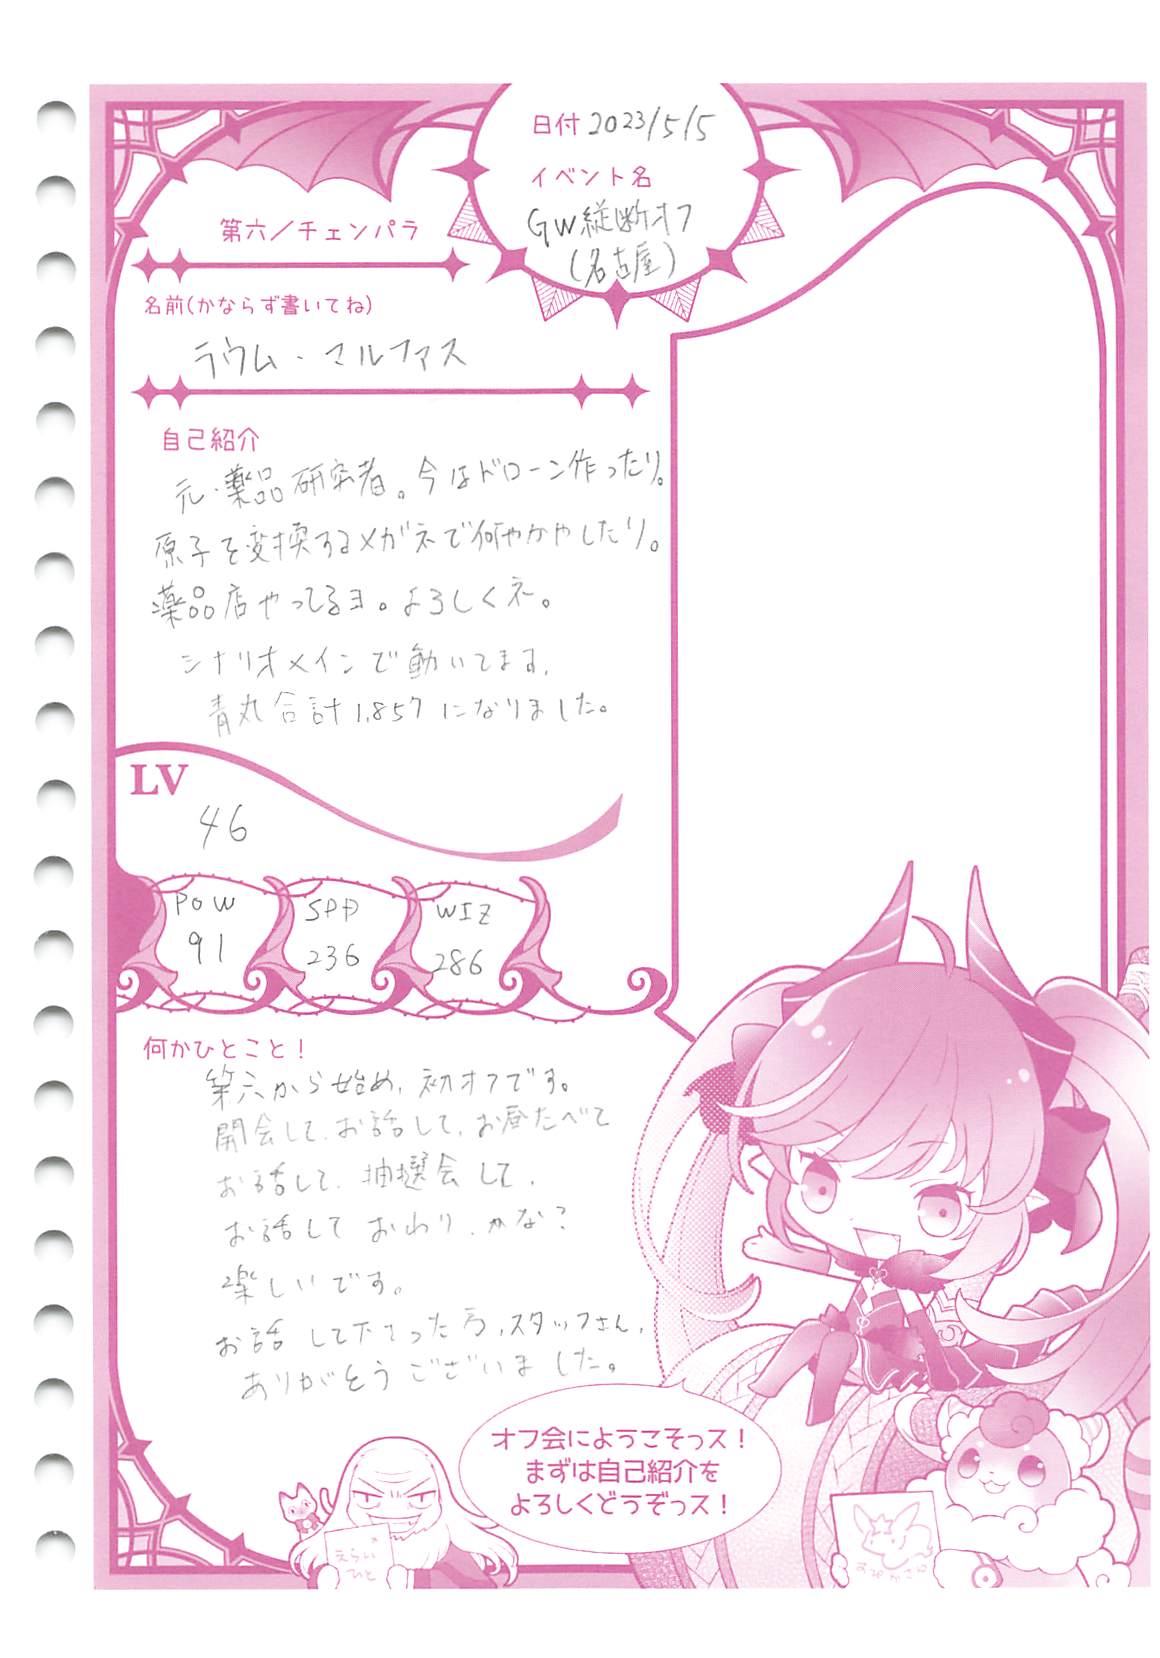 日付 2023/5/5
イベント名
GW縦断オフ
(名古屋)
第六／チェンパラ
名前(かならず書いてね)
ラウム・マルファス
自己紹介
元・薬品研究者。今はドローン作ったり。
原子を変換するメガネで何やかやしたり。
薬品店やってるヨ。よろしくネ。
シナリオメインで動いてます。
青丸合計1,857になりました。
LV
46
POW
91
SPD
236
WIZ
286
何かひとこと！
第六から始め、初オフです。
開会して、お話して、お昼たべて
お話して、抽選会して、
お話して おわり、かな？
楽しいです。
お話して下さった方、スタッフさん、
ありがとうございました。
オフ会にようこそっス！
まずは自己紹介を
よろしくどうぞっス！
えらい
ひと